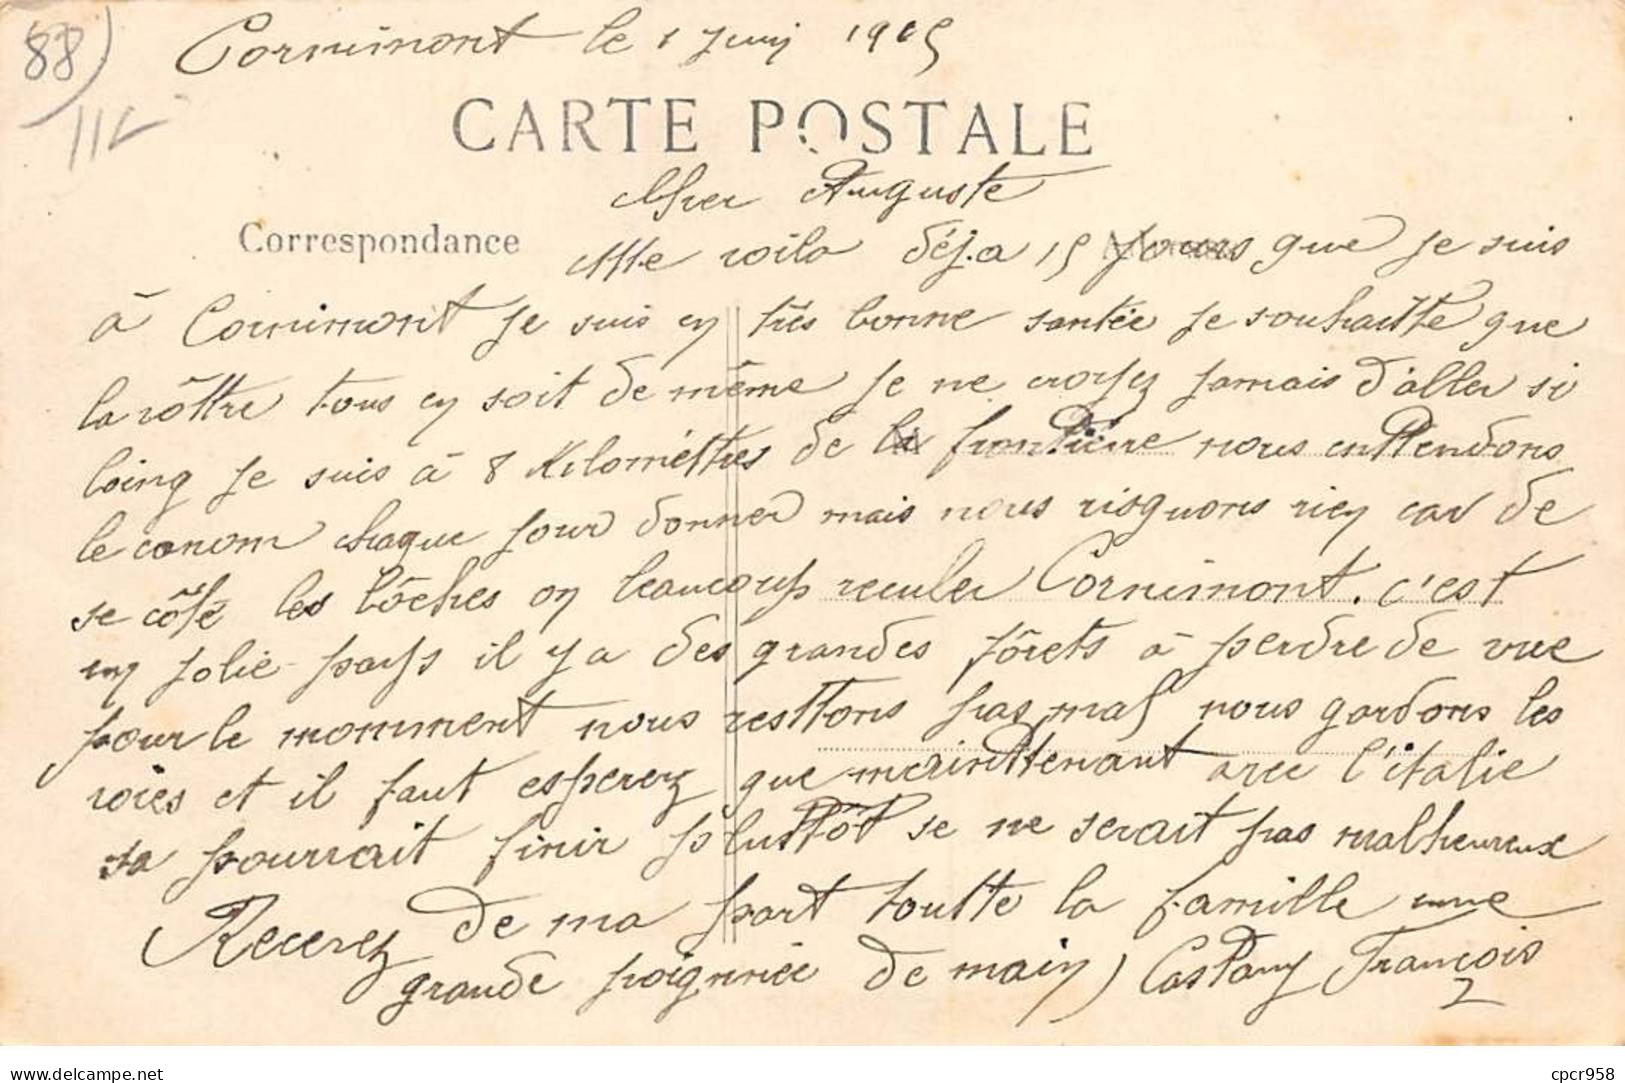 88
Cornimont le 1 Juin 1915
CARTE POSTALE
Cher Auguste
Correspondance
Me voila déja 15 jours que je suis
à Cornimont je suis en très bonne santée je souhaitte que
la vôttre tous en soit de même je ne croyez jamais d'aller si
loing je suis à 8 Kilométtres de la frontière nous enttendons
le canom chaque jour donner mais nous risquons rien car de
se côté les bôches on beaucoup reculer Cornimont. c'est
un jolie pays il y a des grandes fôrets à perdre de vue
pour le momment nous resttons pas mal nous gardons les
voies et il faut esperez que mainttenant avec l'italie
sa pourrait finir pluttôt se ne serait pas malheureux
Recevez de ma part toutte la famille une
grande poignnée de main) Castany François
cpcr958